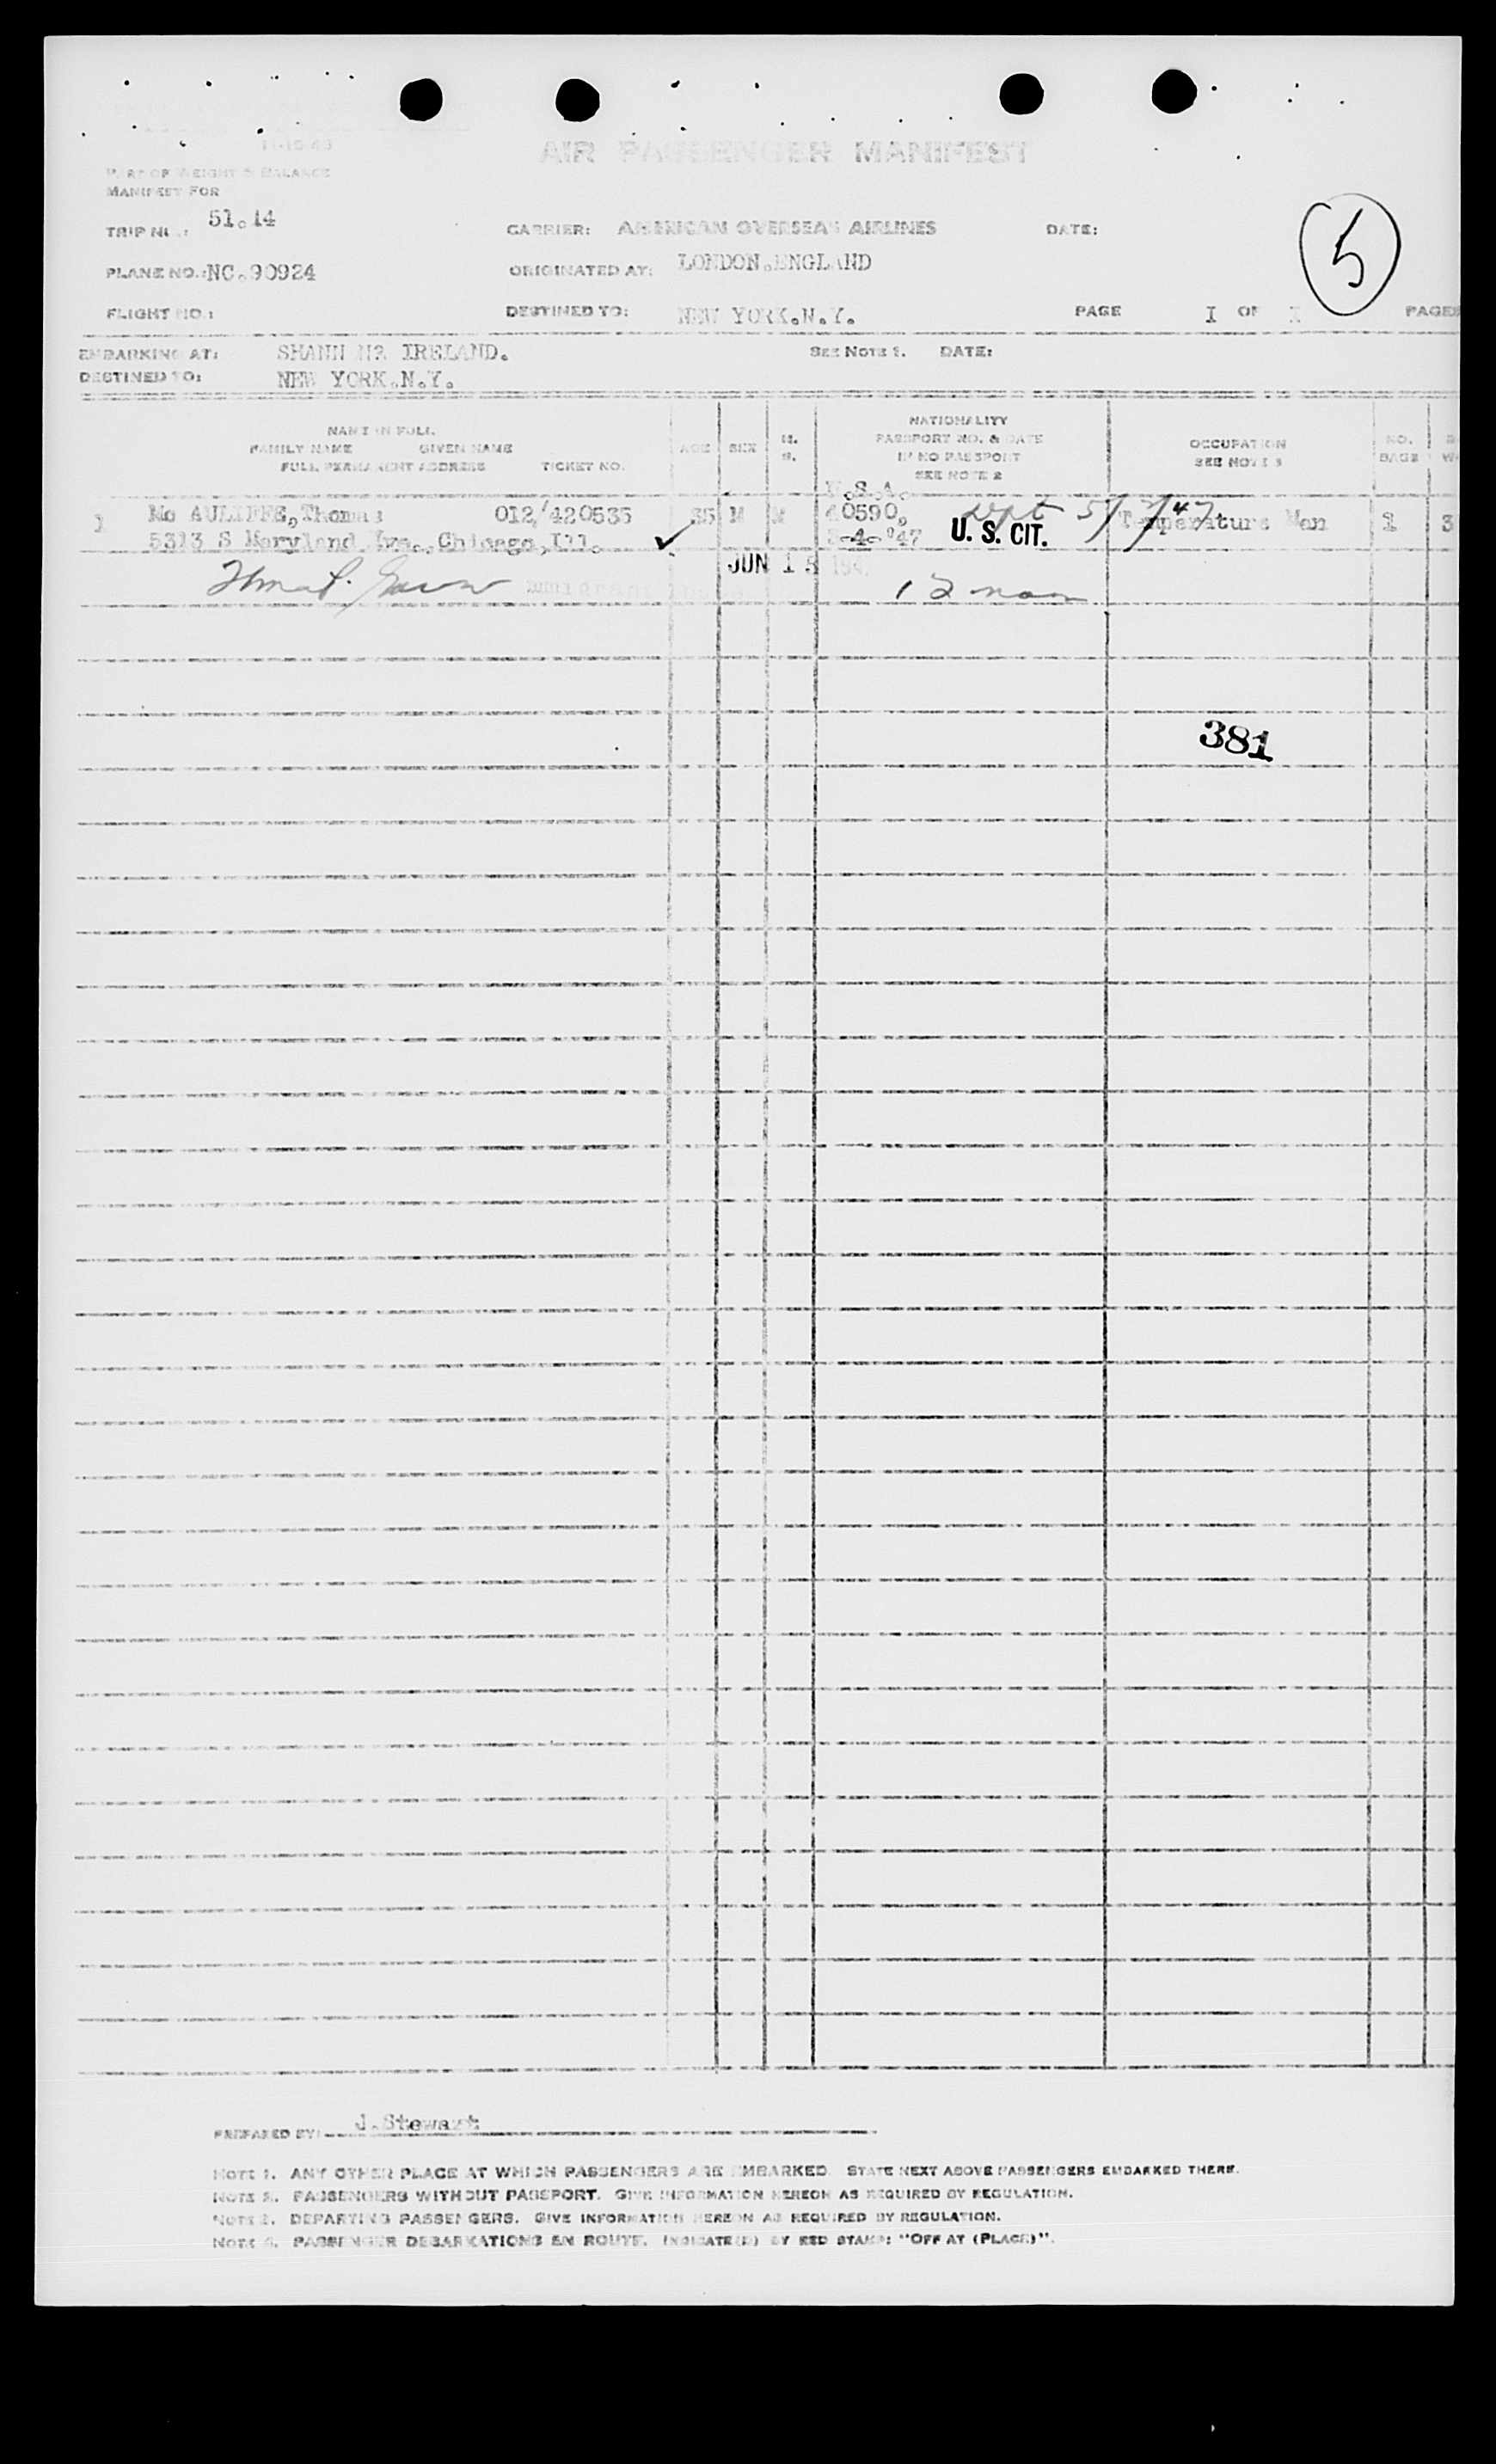 11-15-45
AIR PASSENGER MANIFEST
PART OF WEIGHT & BALANCE
MANIFEST FOR
TRIP NO.: 51.14 CARRIER: AMERICAN OVERSEAS AIRLINES DATE: 5
PLANE NO.: NC.90924 ORIGINATED AT: LONDON.ENGLAND
FLIGHT NO.: DESTINED TO: NEW YORK.N.Y. PAGE I OF I PAGES
EMBARKING AT: IRELAND. SEE NOTE 1. DATE:
DESTINED TO: NEW YORK.N.Y.
NAME IN FULL
FAMILY NAME GIVEN NAME
FULL PERMANENT ADDRESS TICKET NO.
AGE SEX M. S.
NATIONALITY
PASSPORT NO. & DATE
IF NO PASSPORT
SEE NOTE 2
OCCUPATION
SEE NOTE 3
NO. BAGS
U.S.A.
1 Mc AULIFFE,Thomas 012/420535 35 M M 0590, Dept 5/7/47 Temperature Man 1 3
5313 S Maryland Ave.,Chicago,Ill. -4-'47 U. S. CIT.
JUN 15 194
12 mos
381
PREPARED BY: J.Stewart
NOTE 1. ANY OTHER PLACE AT WHICH PASSENGERS ARE EMBARKED. STATE NEXT ABOVE PASSENGERS EMBARKED THERE.
NOTE 2. PASSENGERS WITHOUT PASSPORT. GIVE INFORMATION HEREON AS REQUIRED BY REGULATION.
NOTE 3. DEPARTING PASSENGERS. GIVE INFORMATION HEREON AS REQUIRED BY REGULATION.
NOTE 4. PASSENGER DEBARKATIONS EN ROUTE. INDICATE(D) BY RED STAMP: "OFF AT (PLACE)".